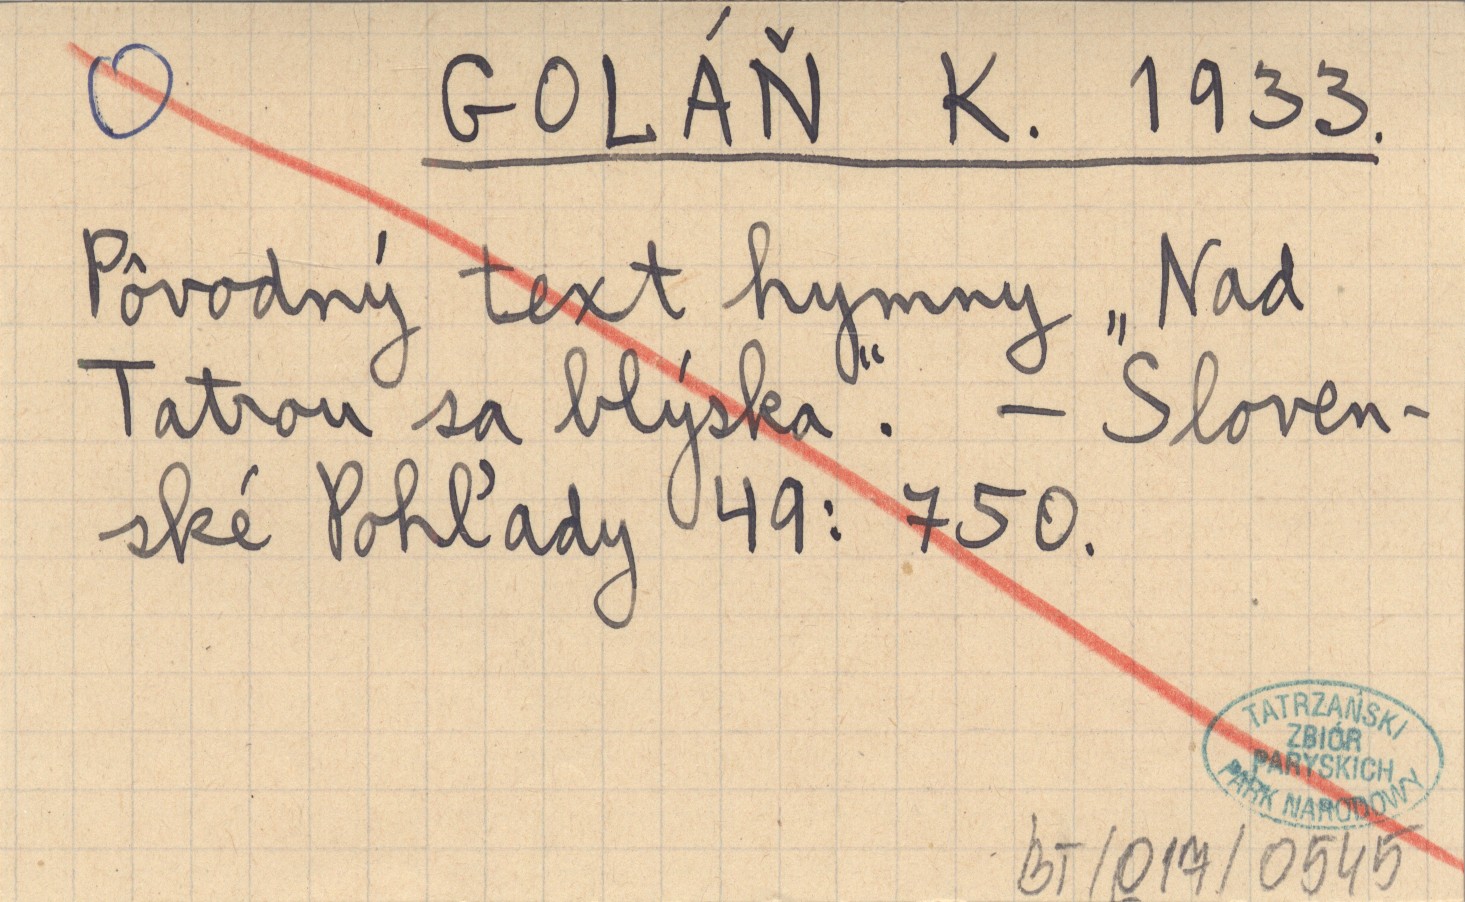 GOLÁŇ K. 1933.
Pôvodný text hymny „Nad
Tatrou sa blýska“. — Sloven-
ské Pohľady 49: 750.
TATRZAŃSKI
ZBIÓR
PARYSKICH
PARK NARODOWY
BT/017/0545